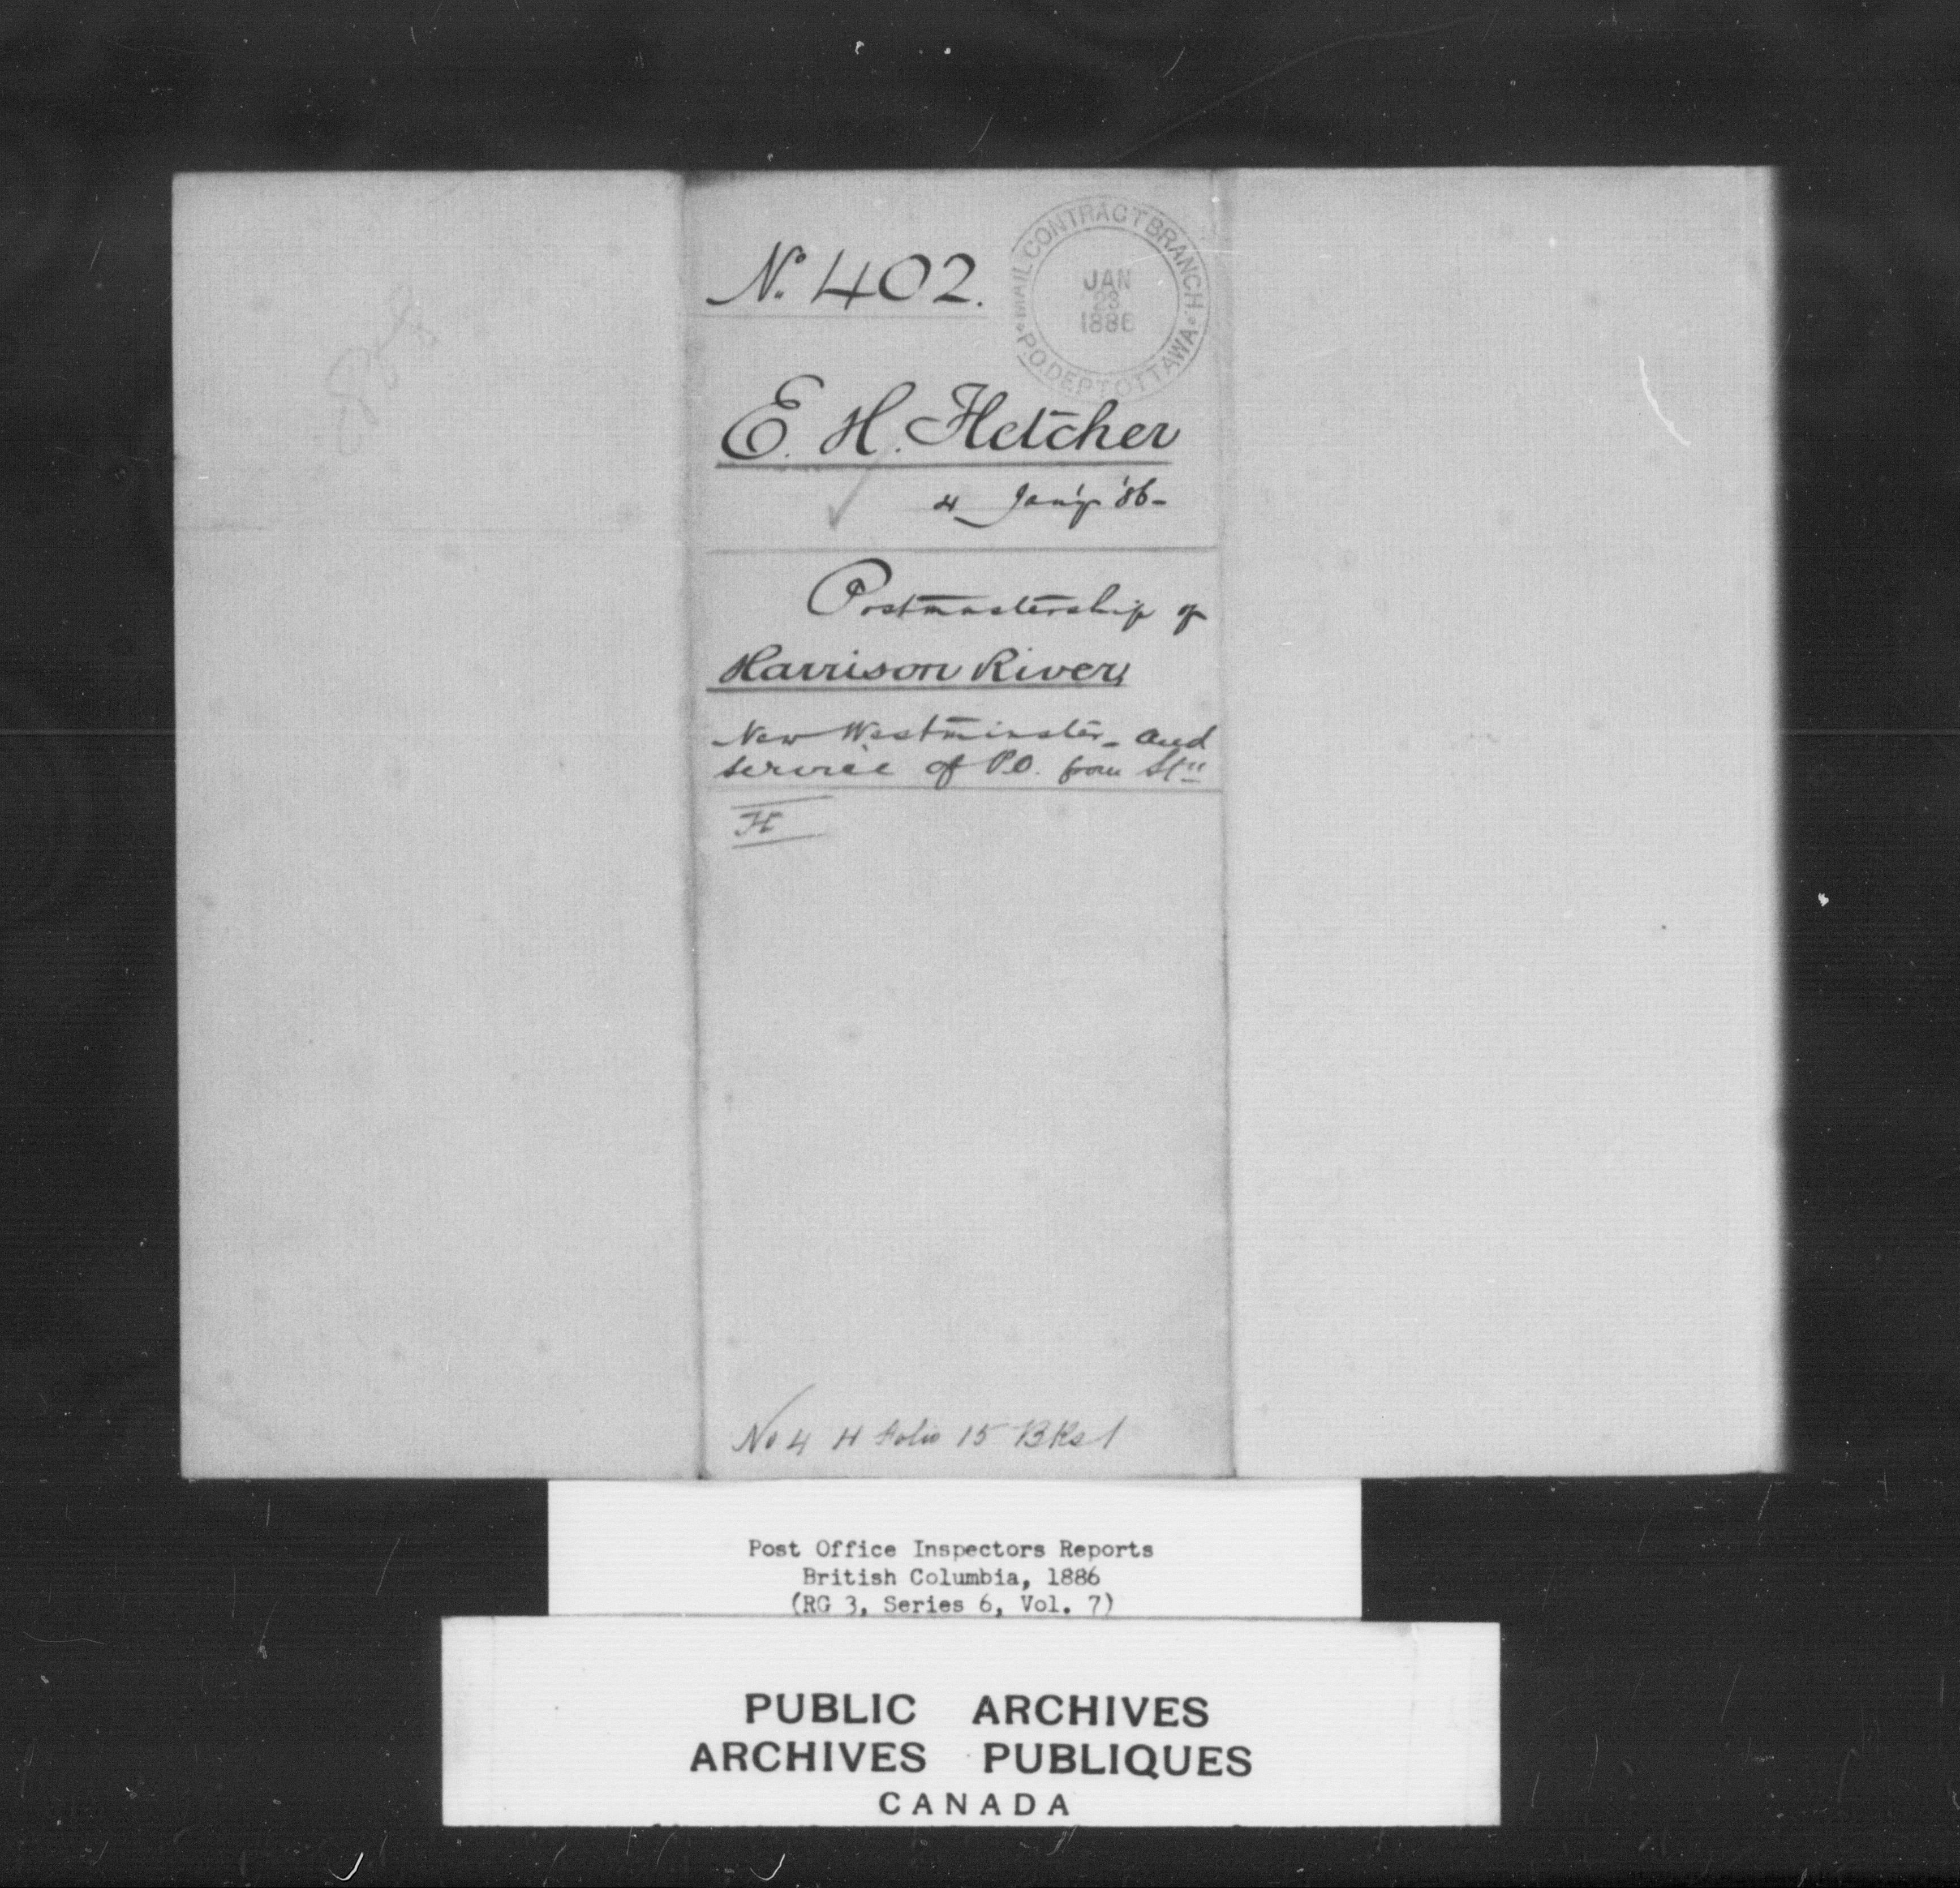 No. 402.
MAIL CONTRACT BRANCH
P.O. DEPT OTTAWA
JAN
23
1886
E. H. Fletcher
4 Jan'y '86-
Postmastership of
Harrison River,
New Westminster - and
service of P.O. from Stn
H
No 4 H Folio 15 BKs 1
Post Office Inspectors Reports
British Columbia, 1886
(RG 3, Series 6, Vol. 7)
PUBLIC ARCHIVES
ARCHIVES PUBLIQUES
CANADA